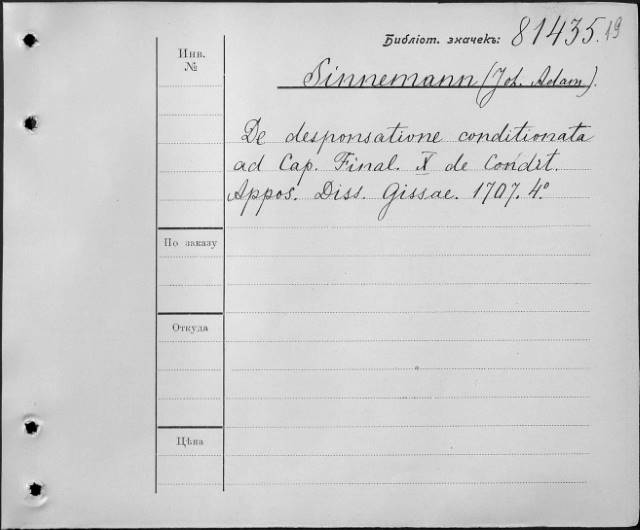 Библіот. значекъ: 81435.19
Инв.
№
Sinnemann (Joh. Adam).
De desponsatione conditionata
ad Cap. Final. X de Condit.
Appos. Diss. Gissae. 1707. 4º
По заказу
Откуда
Цѣна